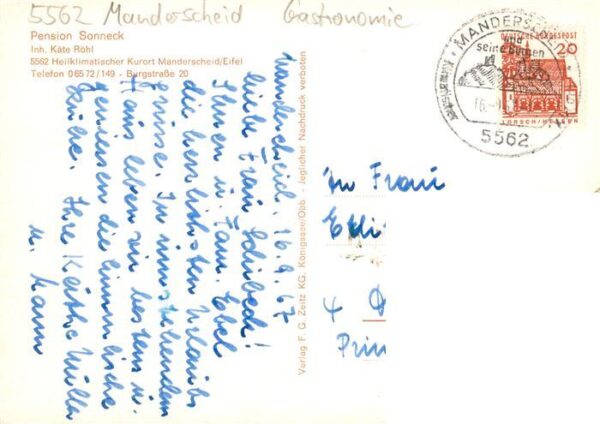 5562 Manderscheid Gastronomie
Pension Sonneck
Inh. Käte Röhl
5562 Heilklimatischer Kurort Manderscheid/Eifel
Telefon 0 65 72 / 149 - Burgstraße 20
Manderscheid, 16.9.67
Liebe Frau
Ihnen u. Fam. Ebel
die herzlichsten Urlaubs
Grüsse. In umstehendem
Haus leben wir bestens u.
geniessen die himmlische
Ruhe. Ihre Käthe Müller
u. Mann
Verlag F. G. Zeitz KG. Königssee/Obb. - Jeglicher Nachdruck verboten
MANDERSCHEID
und
seine Burgen
5562
DEUTSCHE BUNDESPOST
20
LORSCH/HESSEN
An Frau
4 D
Prin